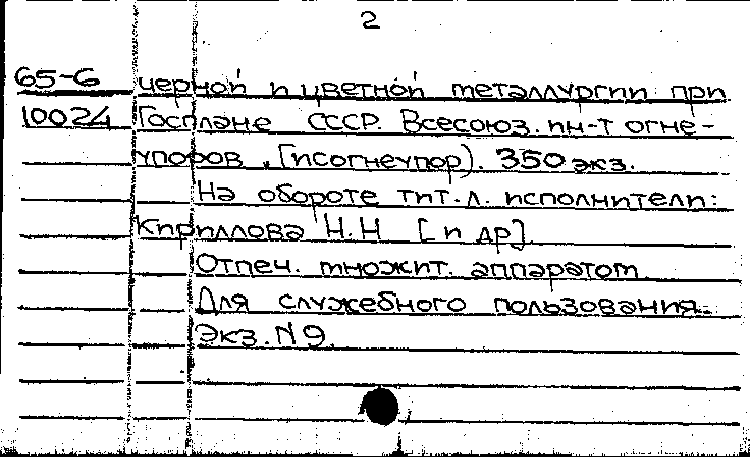 2
65-6 черной и цветной металлургии при
10024 Госплане СССР. Всесоюз. ин-т огне-
упоров. [исогнеупор). 350 экз.
На обороте тит. л. исполнители:
Кириллова Н.Н [и др]
Отпеч. множит. аппаратом
Для служебного пользования.
Экз. N 9.